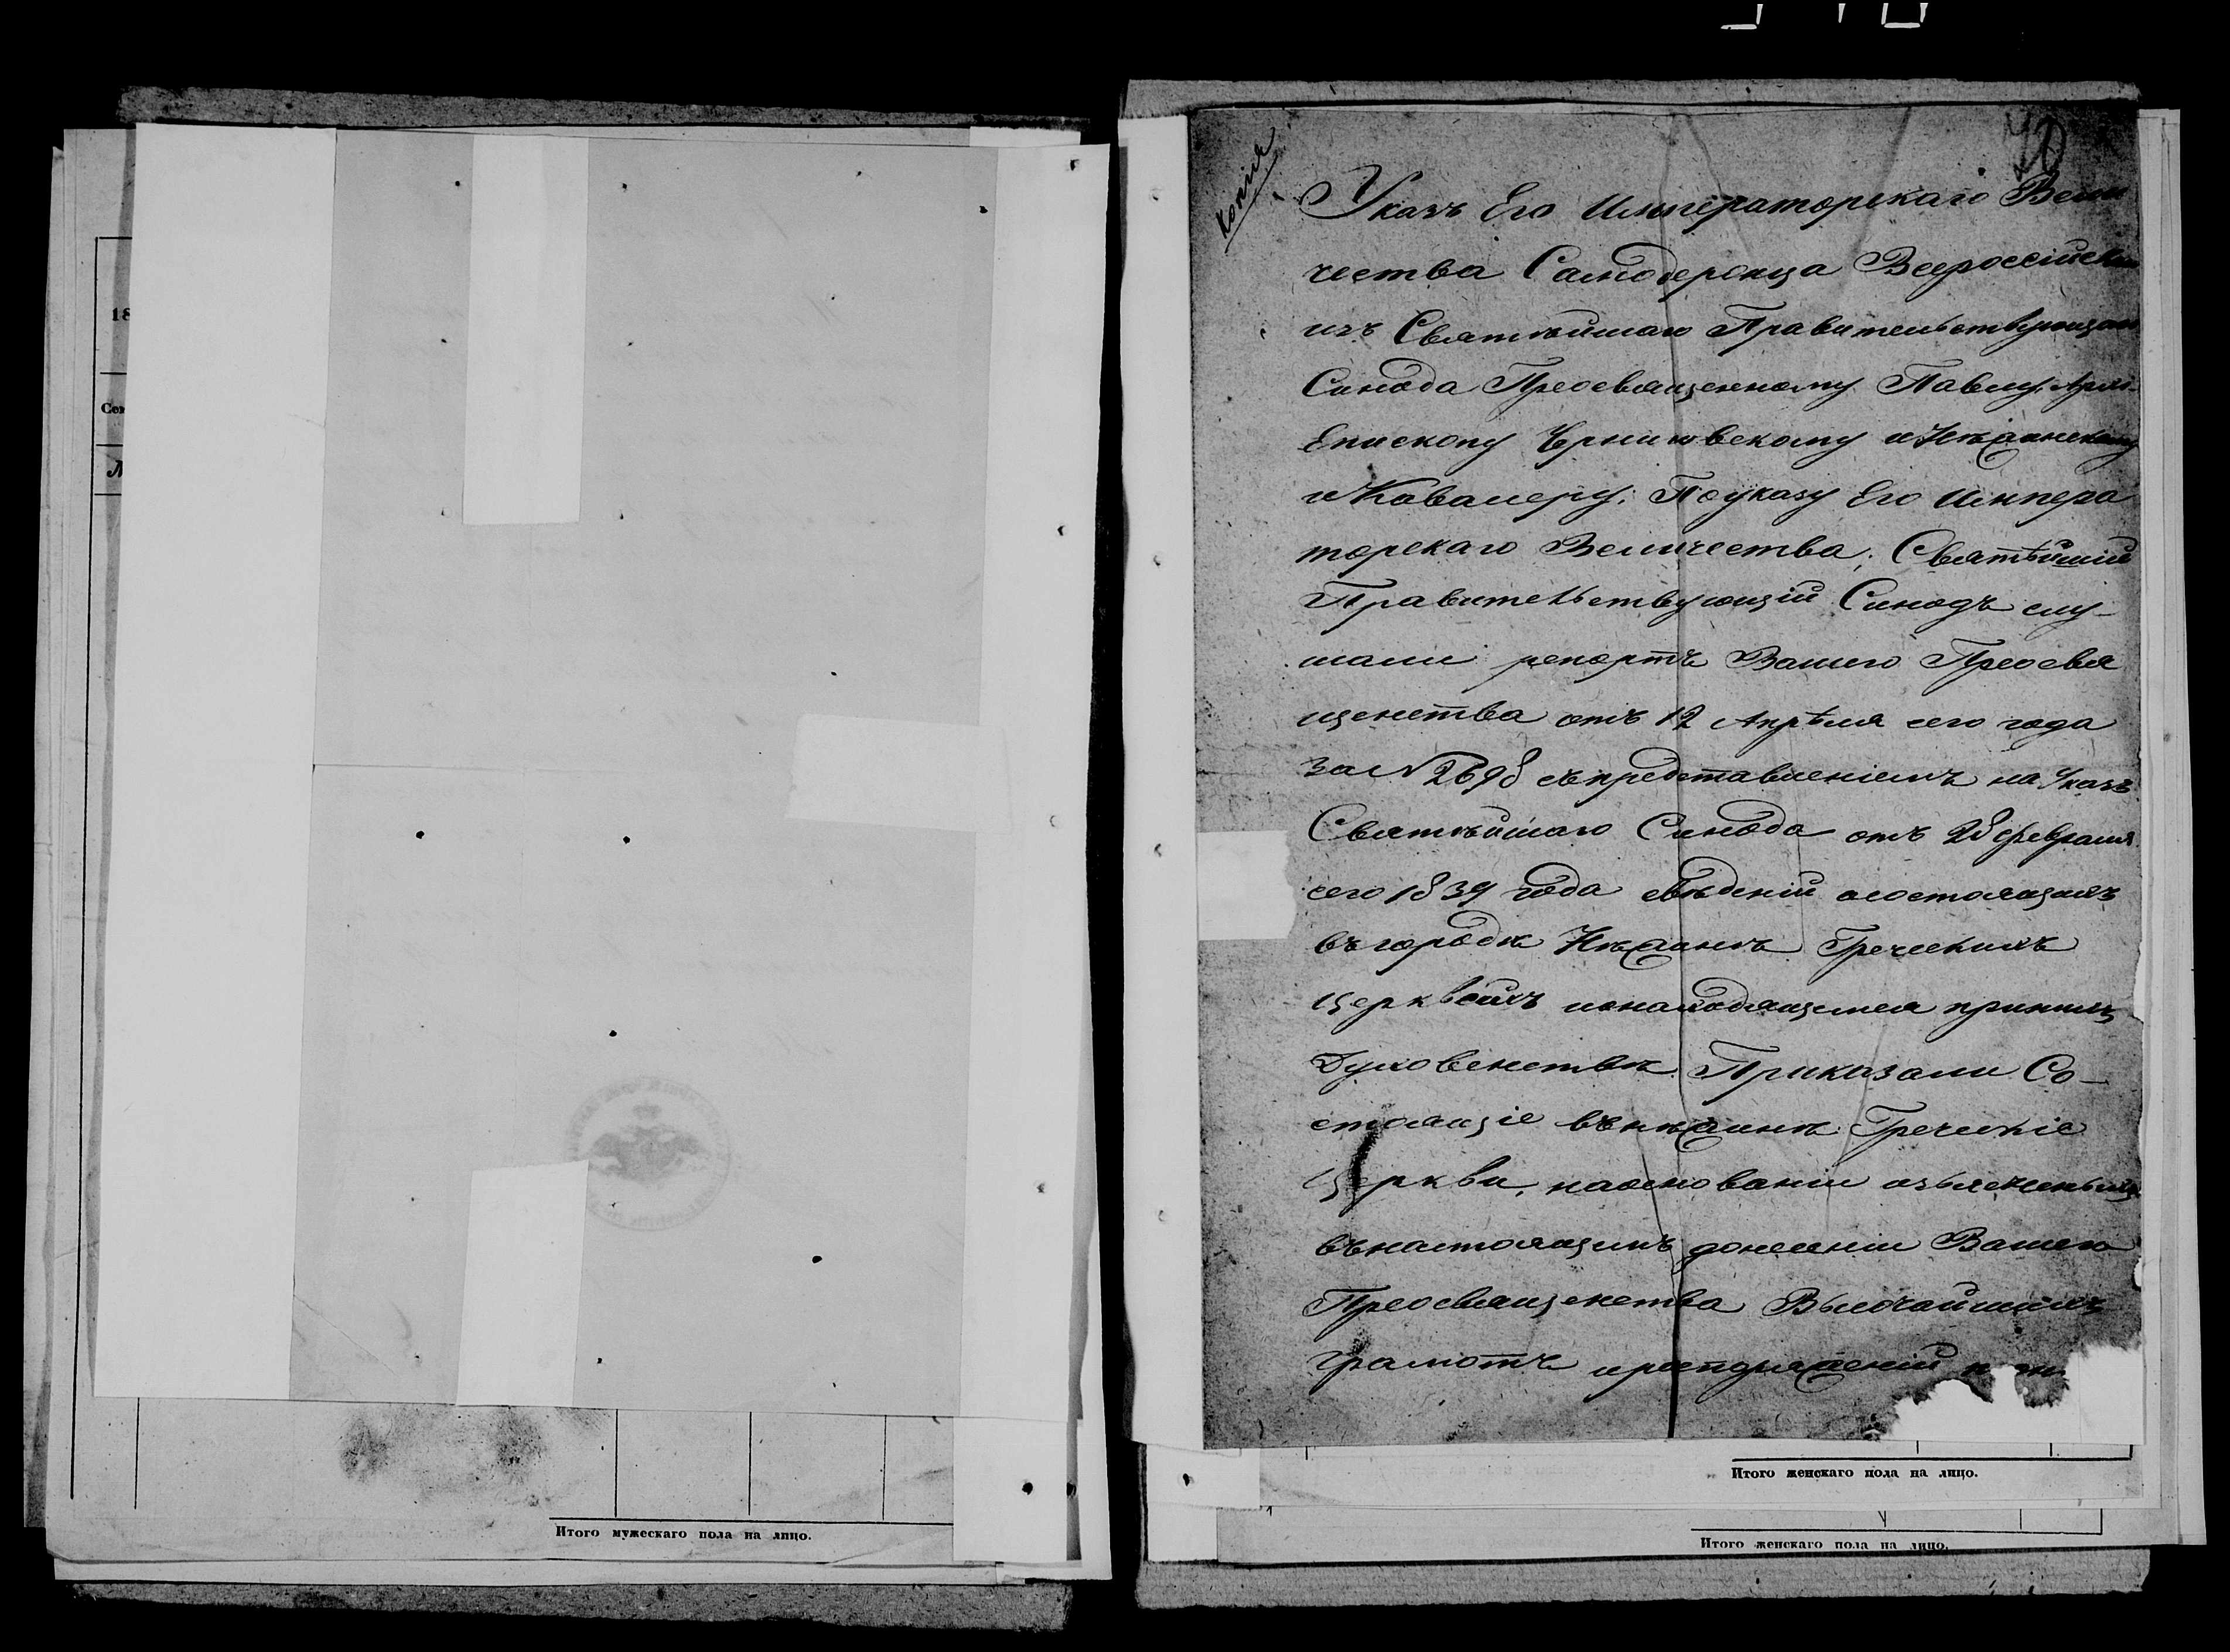 18
Сек
№
Итого мужескаго пола на лицо.
Копия
40
Указъ Его Императорскаго Вели
чества Самодержца Всероссійскаго
изъ Святѣйшаго Правительствующаго
Синода Преосвященному Павлу, Архи-
Епископу Черниговскому и Нѣжинскому
и Кавалеру. По указу Его Импера
торскаго Величества, Святѣйшій
Правительствующій Синодъ слу-
шали репортъ Вашего Преосвя
щенства отъ 12 Апрѣля сего года
за № 2698 съ представленіемъ на Указъ
Святѣйшаго Синода отъ 28 февраля
сего 1839 года свѣдѣній о состоящихъ
въ городѣ Нѣжинѣ Греческихъ
церквахъ и о находящемся при нихъ
Духовенствѣ. Приказали Со-
стоящіе въ Нѣжинѣ Греческіе
Церкви, на основаніи изъясненныхъ
въ настоящемъ донесеніи Вашего
Преосвященства Высочайшихъ
грамотъ и распоряженій
Итого женскаго пола на лицо.
Итого женскаго пола на лицо.